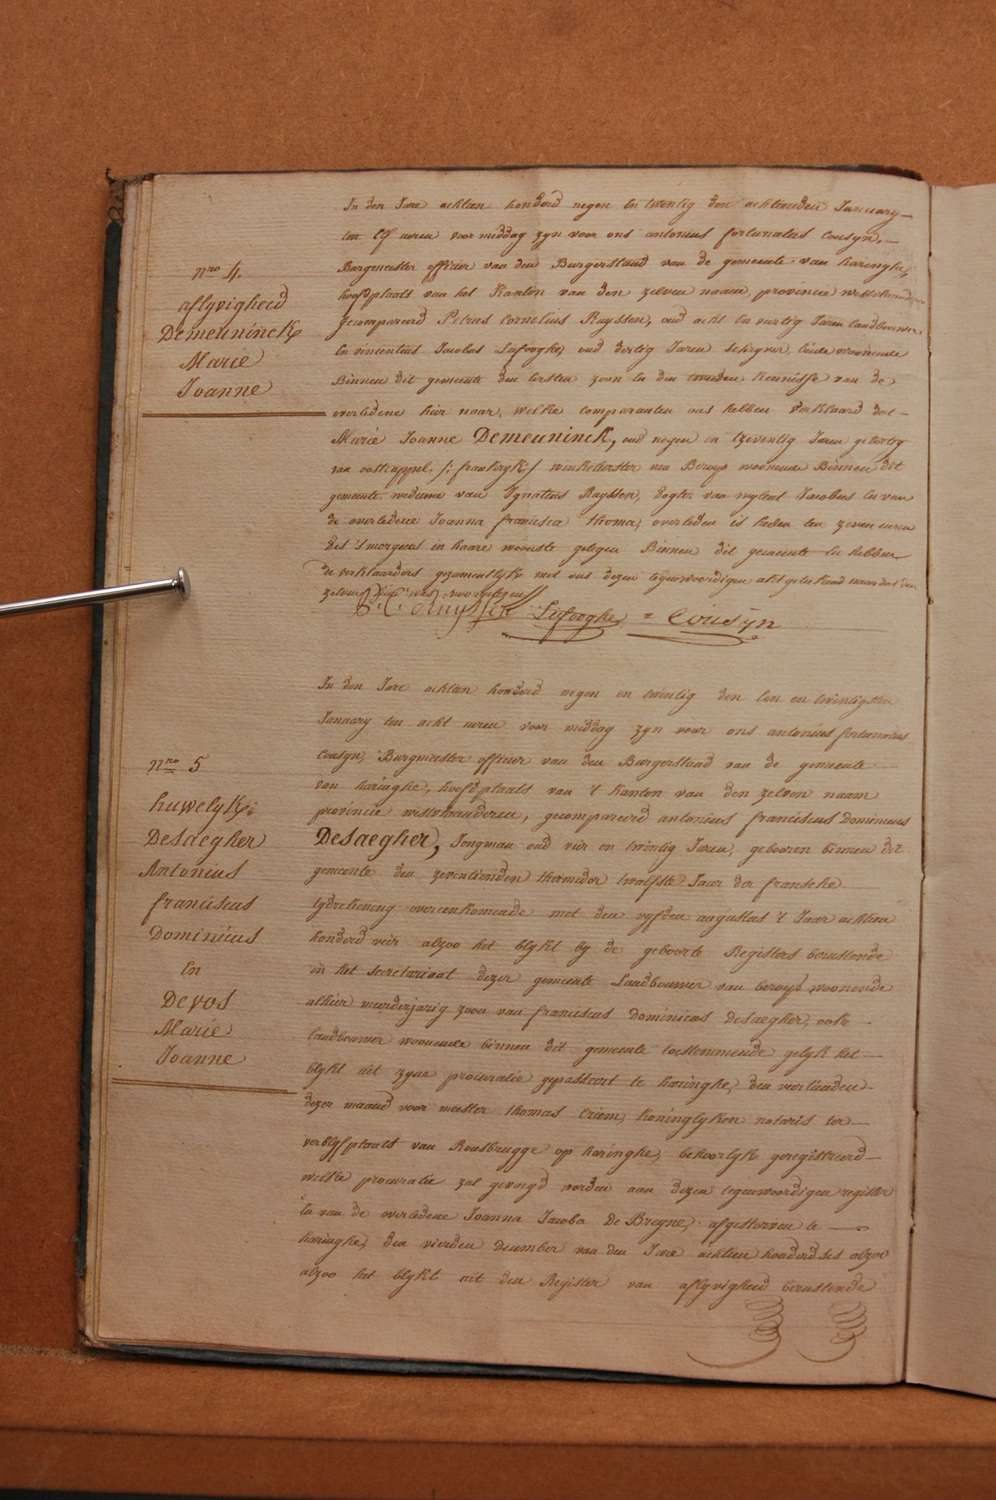 nro 4.
aflyvigheid
Demeuninck
Marie
Joanne
In den Jare achtien honderd negen en twentig den achtienden January
ten Elf uren voor middag zyn voor ons antonius fortunatus Cousyn,
Burgmeester officier van den Burgerstand van de gemeente van haringhe,
hoofdplaats van het Kanton van den zelven naam, provincie
gecompareerd Petrus Cornelius Ruyssen, oud acht en veertig Jaren landbouwer
en vincentius Jacobus Lefooghe, oud dertig Jaren schryver, beide woonende
Binnen dit gemeente den eersten zoon en den tweeden Kennisse van de
overledene hier naer, welke comparanten ons hebben verklaard dat
Marie Joanne Demeuninck, oud negen en tzeventig Jaren geboortig
van oostcappel /: frankryk :/ winkelierster van Beroep woonende Binnen dit
gemeente weduwe van Ignatius Ruyssen, dogter van wylent Jacobus en van
de overledene Joanna francisca thoma, overleden is heden ten zeven uren
des 's morgens in haare wooninge gelegen Binnen dit gemeente en hebben
de verklaarders gezamentlyk met ons dezen tegenwoordigen akt geteekend naer dat
zelven hun was voorgelezen
P. C. Ruyssen Lefooghe = Cousyn
nro 5
huwelyk:
Desaegher
Antonius
franciscus
Dominicus
En
Devos
Marie
Joanne
In den Jare achtien honderd negen en twintig den een en twintigsten
January ten acht uren voor middag zyn voor ons antonius fortunatus
Cousyn, Burgmeester officier van den Burgerstand van de gemeente
van haringhe, hoofdplaats van 't kanton van den zelven naam
provincie westvlaanderen, gecompareerd antonius franciscus dominicus
Desaegher, Jongman oud vier en twintig Jaren, gebooren binnen dit
gemeente den zeventienden thermidor twalfste Jaar der fransche
tydrekening overeenkomende met den vyfden augustus 't Jaar achtien
honderd vier alzoo het blykt by de geboorte Registers berustende
in het secretariaat dezer gemeente Landbouwer van beroep woonende
alhier meerderjarig zoon van franciscus dominicus desaegher, ook
landbouwer woonende binnen dit gemeente toestemmende gelyk het
blykt uit zyne procuratie gepasseert te haringhe, den
dezer maand voor meester thomas Criem, koninglyken notaris ter
verblyfplaats van Rousbrugge op haringhe, behoorlyk geregistreerd
welke procuratie zal gevoegd worden aan dezen tegenwoordigen register
en van de overledene Joanna Jacoba De Breyne, afgestorven te
haringhe, den vierden december van den Jare achtien honderd ses alzoo
alzoo het blykt uit den Register van aflyvigheid berustende